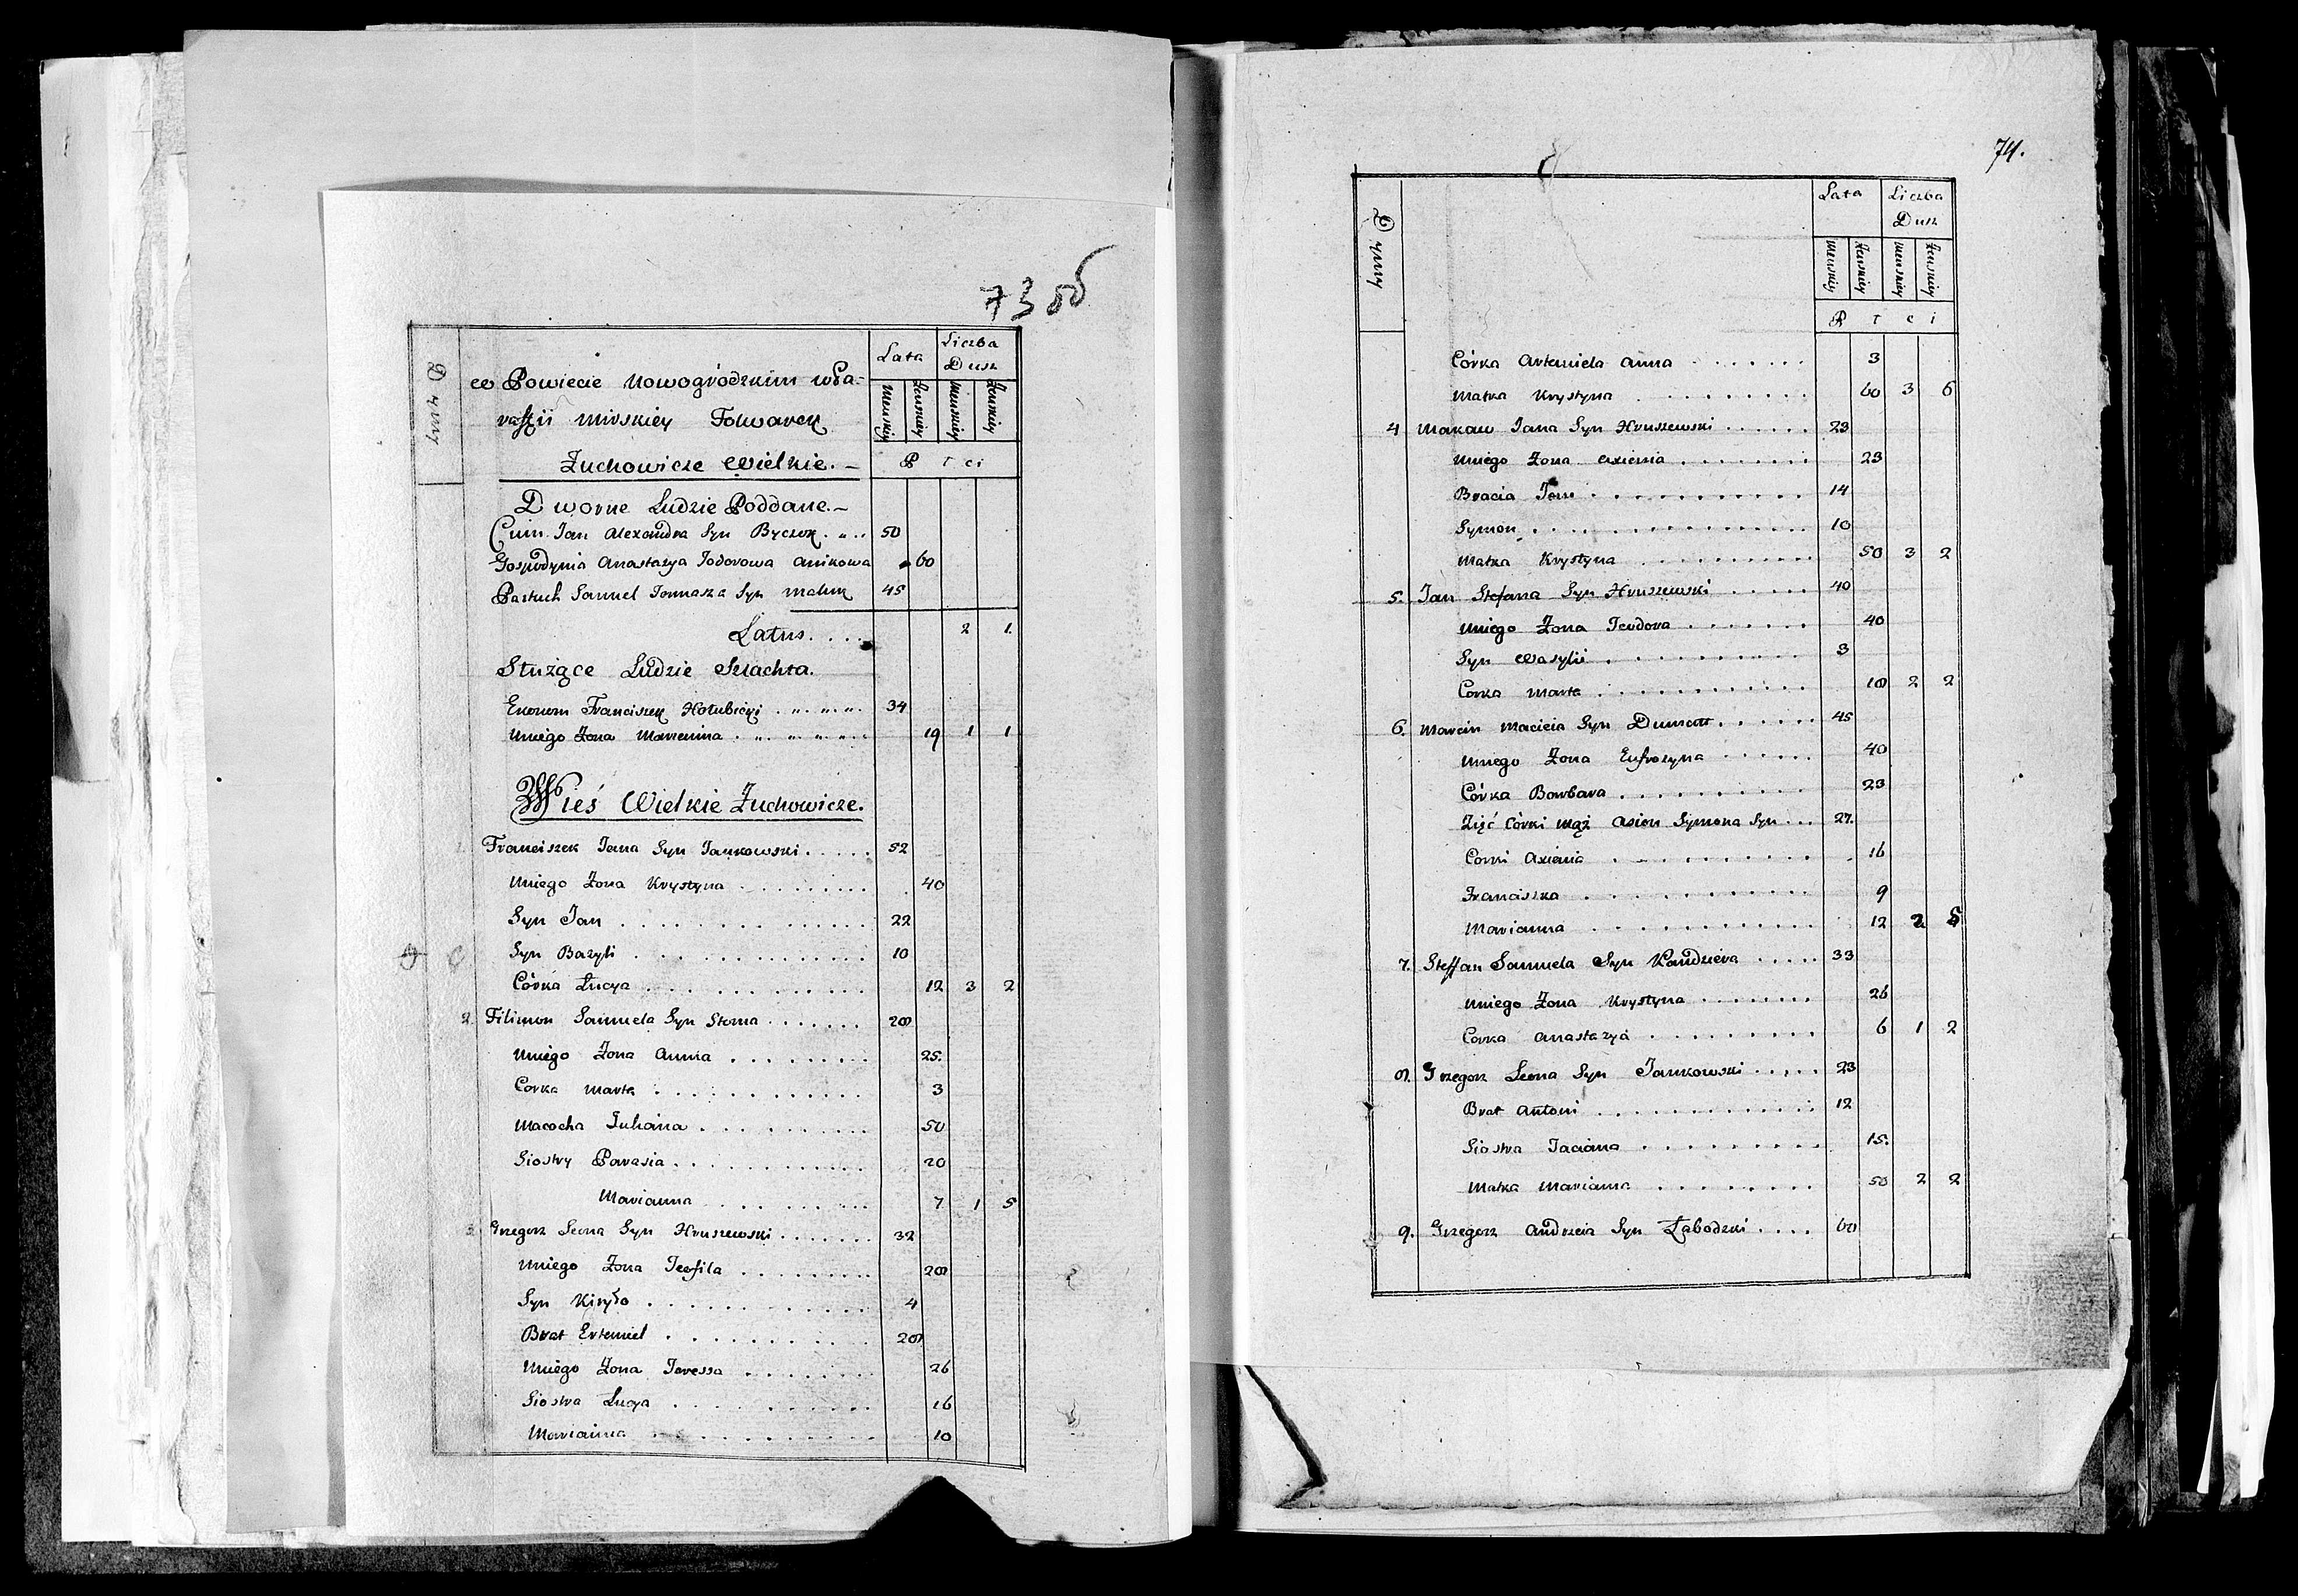 73 об
Dymy
w Powiecie Nowogródzkim w Pa-
rafii Mirskiey Folwarek
Żuchowicze Wielkie.-
Lata
Liczba
Dusz
Menskiey Żenskiey Menskiey Żenskiey
P t c i
Dworne Ludzie Poddane.-
Jan Alexandra Syn Byczek 50
Gospodynia Anastazya Fodorowa Anikowa 60
Pastuch Samuel Tomasza Syn 45
Latus. . . . 2 1.
Służące Ludzie Szlachta.
Ekonom Franciszek Hołubicki 34
Uniego Żona Marianna 19 1 1
Wieś Wielkie Żuchowicze.
1. Franciszek Jana Syn Jankowski . . . . 52
Uniego Żona Krystyna . . . . 40
Syn Jan . . . . 22
Syn Bazyli . . . . 10
Córka Łucya . . . . 12 3 2
2. Filimon Samuela Syn Stoma . . . . 28
Uniego Żona Anna . . . . 25.
Corka Marta . . . . 3
Macocha Juliana . . . . 50
Siostry Parasia . . . . 20
Marianna . . . . 7 1 5
3. Grzegorz Leona Syn Hruszewski . . . . 32
Uniego Żona Teofila . . . . 28
Syn Kiryło . . . . 4
Brat Ertemiel . . . . 28
Uniego Żona Teressa . . . . 26
Siostra Łucya . . . . 16
Marianna . . . . 10
74.
Dymy
Lata
Liczba
Dusz
Menskiey Żenskiey Menskiey Żenskiey
P t c i
Córka Artemiela Anna . . . . 3
Matka Krystyna . . . . 60 3 6
4 Makar Jana Syn Hruszewski . . . . 23
Uniego Żona Axienia . . . . 23
Bracia . . . . 14
Symon . . . . 10
Matka Krystyna . . . . 50 3 2
5. Jan Stefana Syn Hruszewski . . . . 40
Uniego Żona Teodora . . . . 40
Syn Wasyli . . . . 3
Corka Marta . . . . 18 2 2
6. Marcin Macieia Syn . . . . 45
Uniego Żona Eufrozyna . . . . 40
Córka Barbara . . . . 23
Zięć Córki mąż Symona Syn . . . 27.
Corki Axienia . . . . 16
Franciszka . . . . 9
Marianna . . . . 12 2 5
7. Steffan Samuela Syn Kandziera . . . . 33
Uniego Żona Krystyna . . . . 26
Corka Anastazya . . . . 6 1 2
8. Grzegorz Leona Syn Jankowski . . . . 23
Brat Antoni . . . . 12
Siostra Taciana . . . . 15.
Matka Marianna . . . . 50 2 2
9. Grzegorz Andrzeia Syn Łabodzki . . . . 60